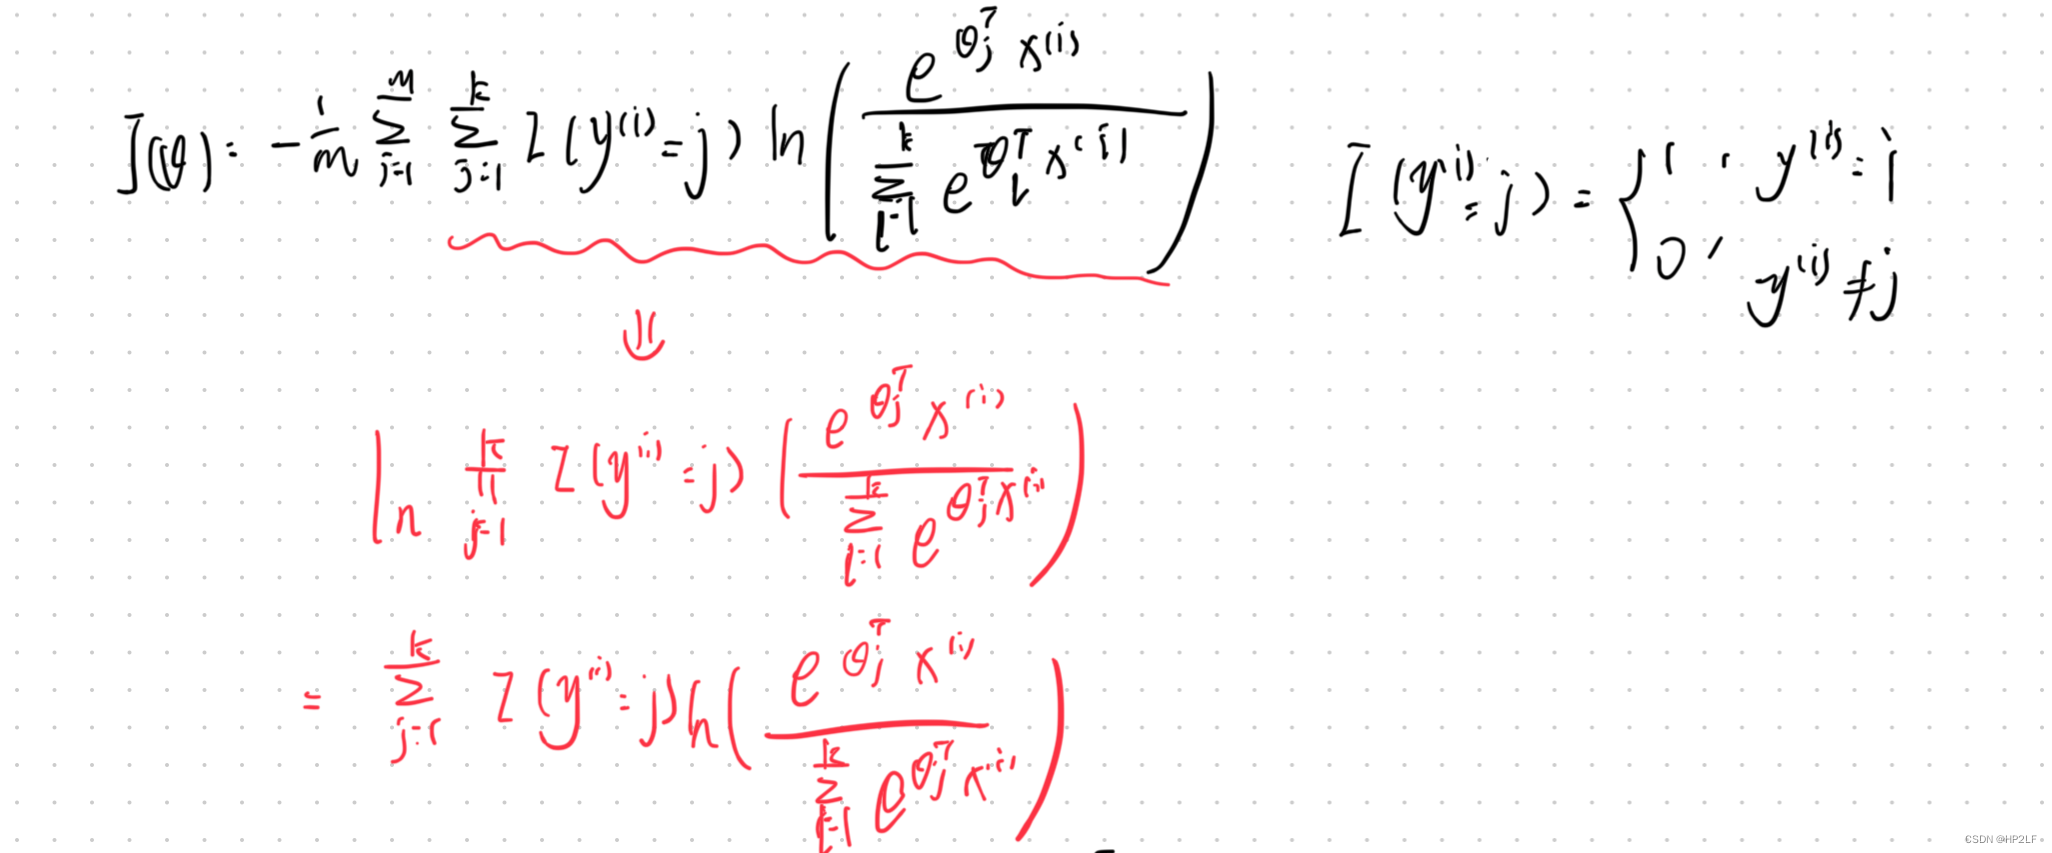 J(θ) = -\frac{1}{m} \sum_{i=1}^{m} \sum_{j=1}^{k} I(y^{(i)}=j) \ln\left(\frac{e^{θ_j^T x^{(i)}}}{\sum_{l=1}^{k} e^{θ_l^T x^{(i)}}}\right)
I(y^{(i)}=j) = \begin{cases} 1, & y^{(i)}=j \\ 0, & y^{(i)}≠j \end{cases}
⇓
\ln \prod_{j=1}^{k} I(y^{(i)}=j) \left(\frac{e^{θ_j^T x^{(i)}}}{\sum_{l=1}^{k} e^{θ_j^T x^{(i)}}}\right)
= \sum_{j=1}^{k} I(y^{(i)}=j) \ln\left(\frac{e^{θ_j^T x^{(i)}}}{\sum_{l=1}^{k} e^{θ_j^T x^{(i)}}}\right)
CSDN @HP2LF